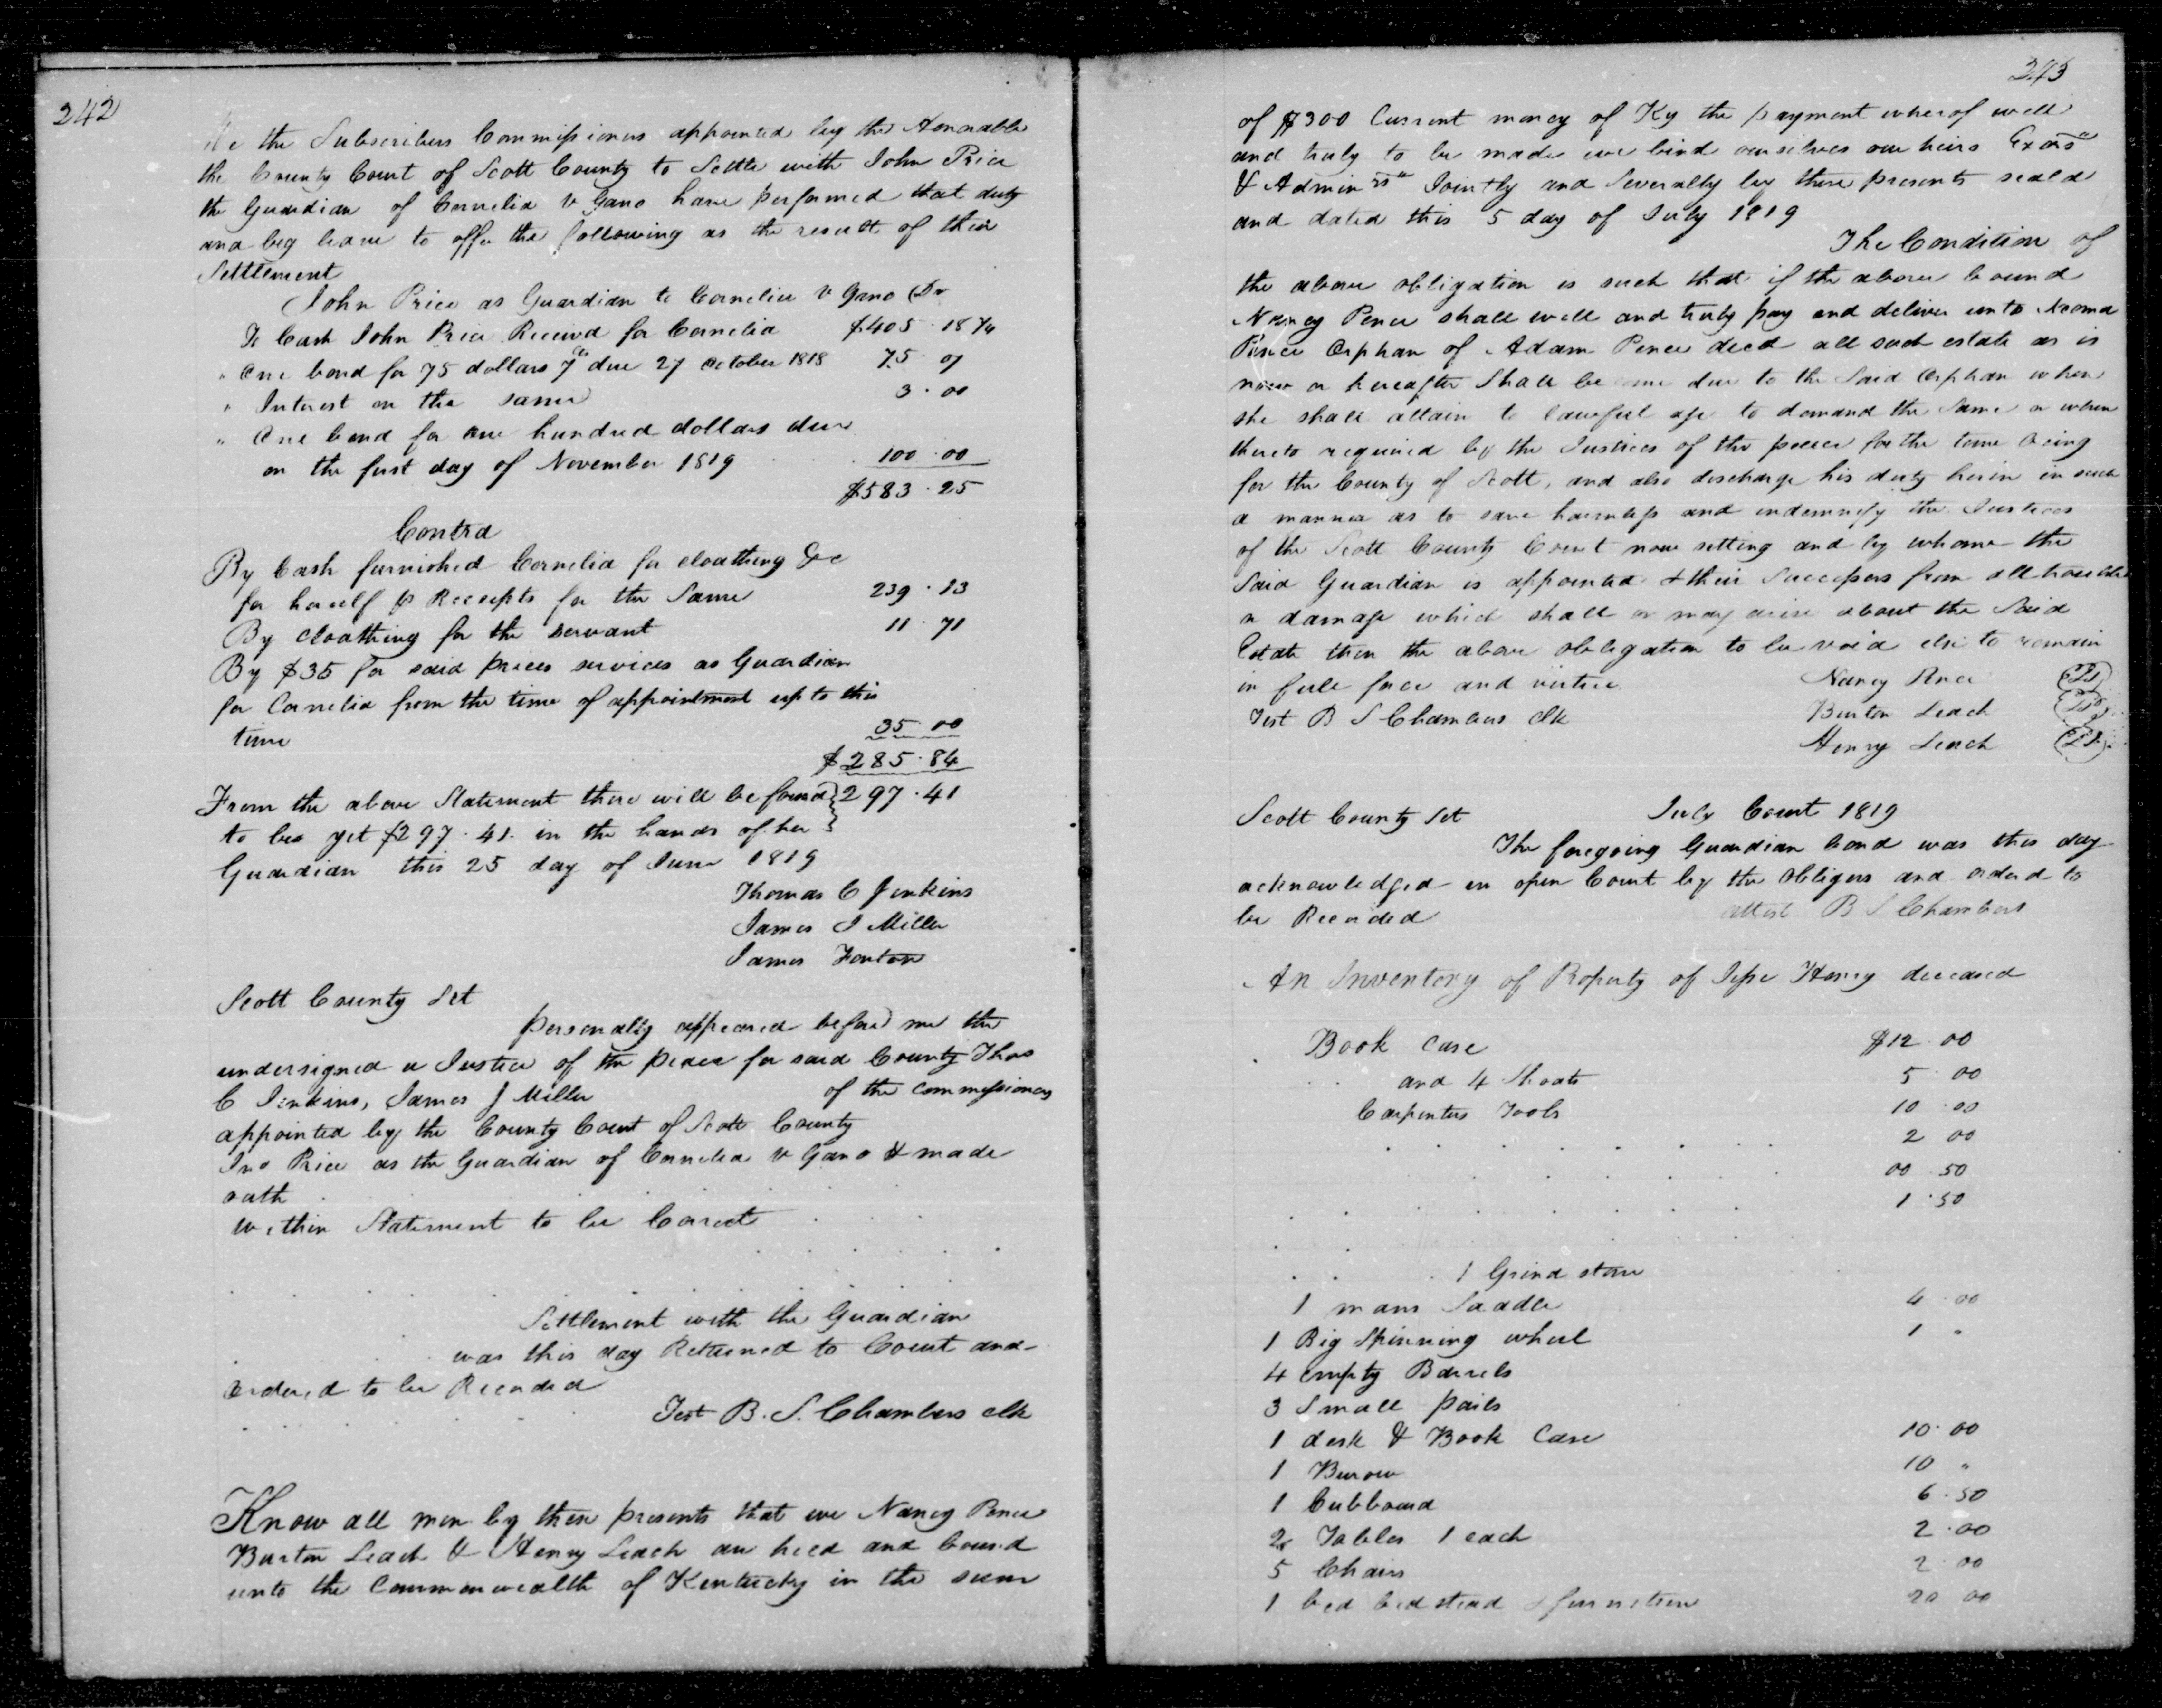 242
We the Subscribers Commissioners appointed by the Honorable
the County Court of Scott County to Settle with John Price
the Guardian of Cornelia V Gano have performed that duty
and beg leave to offer the following as the result of their
Settlement
John Price as Guardian to Cornelia V Gano Dr
To Cash John Price Receivd for Cornelia $405.18 3/4
" One bond for 75 dollars 7 cts due 27 October 1818 75.07
" Interest on the same 3.00
" One bond for one hundred dollars due
on the first day of November 1819 100.00
$583.25
Contra
By Cash furnished Cornelia for cloathing &c
for herself pr Receipts for the Same 239.13
By cloathing for the servant 11.71
By $35 for said prices services as Guardian
for Cornelia from the time of appointment up to this
time 35 00
$285.84
From the above Statement there will be found 297.41
to be yet $297.41 in the hands of her
Guardian this 25 day of June 1819
Thomas C Jenkins
James J Miller
James Fenton
Scott County Sct
personally appeared before me the
undersigned a Justice of the peace for said County Thos
C Jenkins, James J Miller of the commissioners
appointed by the County Court of Scott County
Jno Price as the Guardian of Cornelia V Gano & made
oath
within Statement to be Correct
Settlement with the Guardian
was this day Returned to Court and
ordered to be Recorded
Test B. S. Chambers clk
Know all men by these presents that we Nancy Pence
Burton Leach & Henry Leach are held and bound
unto the Commonwealth of Kentucky in the sum
243
of $300 Current money of Ky the payment wherof well
and truly to be made we bind ourselves our heirs Exors
& Adminrs Jointly and Severally by these presents seald
and dated this 5 day of July 1819
The Condition of
the above obligation is such that if the above bound
Nancy Pence shall well and truly pay and deliver unto
Pence Orphan of Adam Pence decd all such estate as is
now or hereafter Shall become due to the Said Orphan when
she shall attain to lawful age to demand the Same or when
thereto required by the Justices of the peace for the time being
for the County of Scott, and also discharge his duty herein in such
a manner as to save harmless and indemnify the Justices
of the Scott County Court now sitting and by whome the
Said Guardian is appointed & their Successors from all trouble
or damage which shall or may arise about the Said
Estate then the above obligation to be void else to remain
in full force and virtue Nancy Pence (LS)
Test B S Chambers clk Burton Leach (LS)
Henry Leach (LS)
Scott County Sct July Court 1819
The foregoing Guardian bond was this day
acknowledged in open Court by the obligors and orderd to
be Recorded attest B S Chambers
An Inventory of Property of Jesse Henry deceased
Book case $12.00
and 4 Shoats 5.00
Carpenters Tools 10.00
2 00
00.50
1.50
1 Grind stone
1 mans Saddle 4.00
1 Big Spinning wheel 1 "
4 empty Barrels
3 Small pails
1 desk & Book Case 10.00
1 Burow 10 "
1 Cubboard 6.50
2 Tables 1 each 2.00
5 Chairs 2.00
1 bed bedstead & furniture 20 00